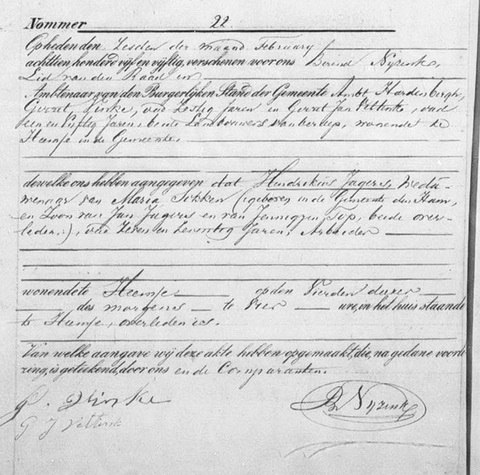 Nommer 22
Op heden den Zesden der maand February
achttien honderd vijf en vijftig, verschenen voor ons Berend Nyzink,
Lid van den Raad en
Ambtenaar van den Burgerlijken Stand der Gemeente Ambt Hardenbergh,
Gerrit Hinke, oud Zestig Jaren en Gerrit Jan Vettink, oud
een en Vyftig Jaren, beide Landbouwers van beroep, wonende te
Heemse in de Gemeente.
dewelke ons hebben aangegeven dat Hendrikus Jagers Wedu-
wenaar van Maria (geboren in de Gemeente den Ham,
en Zoon van Jan Jagers en van Jennigjen Top, beide over-
leden,), oud Zeven en Zeventig Jaren, Arbeider
wonende te Heemse op den Vierden dezer
des morgens te Vier ure, in het huis staande
te Heemse, overleden is.
Van welke aangave wij deze akte hebben opgemaakt, die, na gedane voorle-
zing, is geteekend, door ons en de Comparanten.
G. Hinke
G J Vettink
B Nyzink